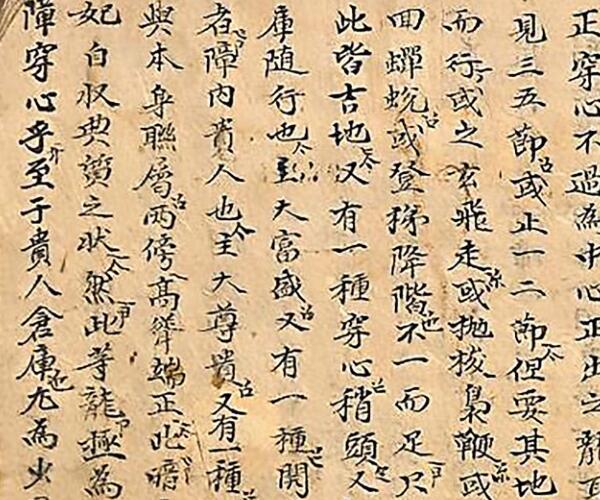 正穿心不過為中心正出之龍
見三五節或止一二節但要其地
而行或之玄飛走或抛梭鞭或
回蟬蛻或登梯降階不一而足只
此皆吉地又有一種穿心稍頭又
庫随行也主大富盛又有一種開
者障内貴人也主大尊貴又有一種
與本身聯層兩傍高聳端正此暗
妃自収典之状然此等龍極為
障穿心乎至于貴人倉庫尤為少